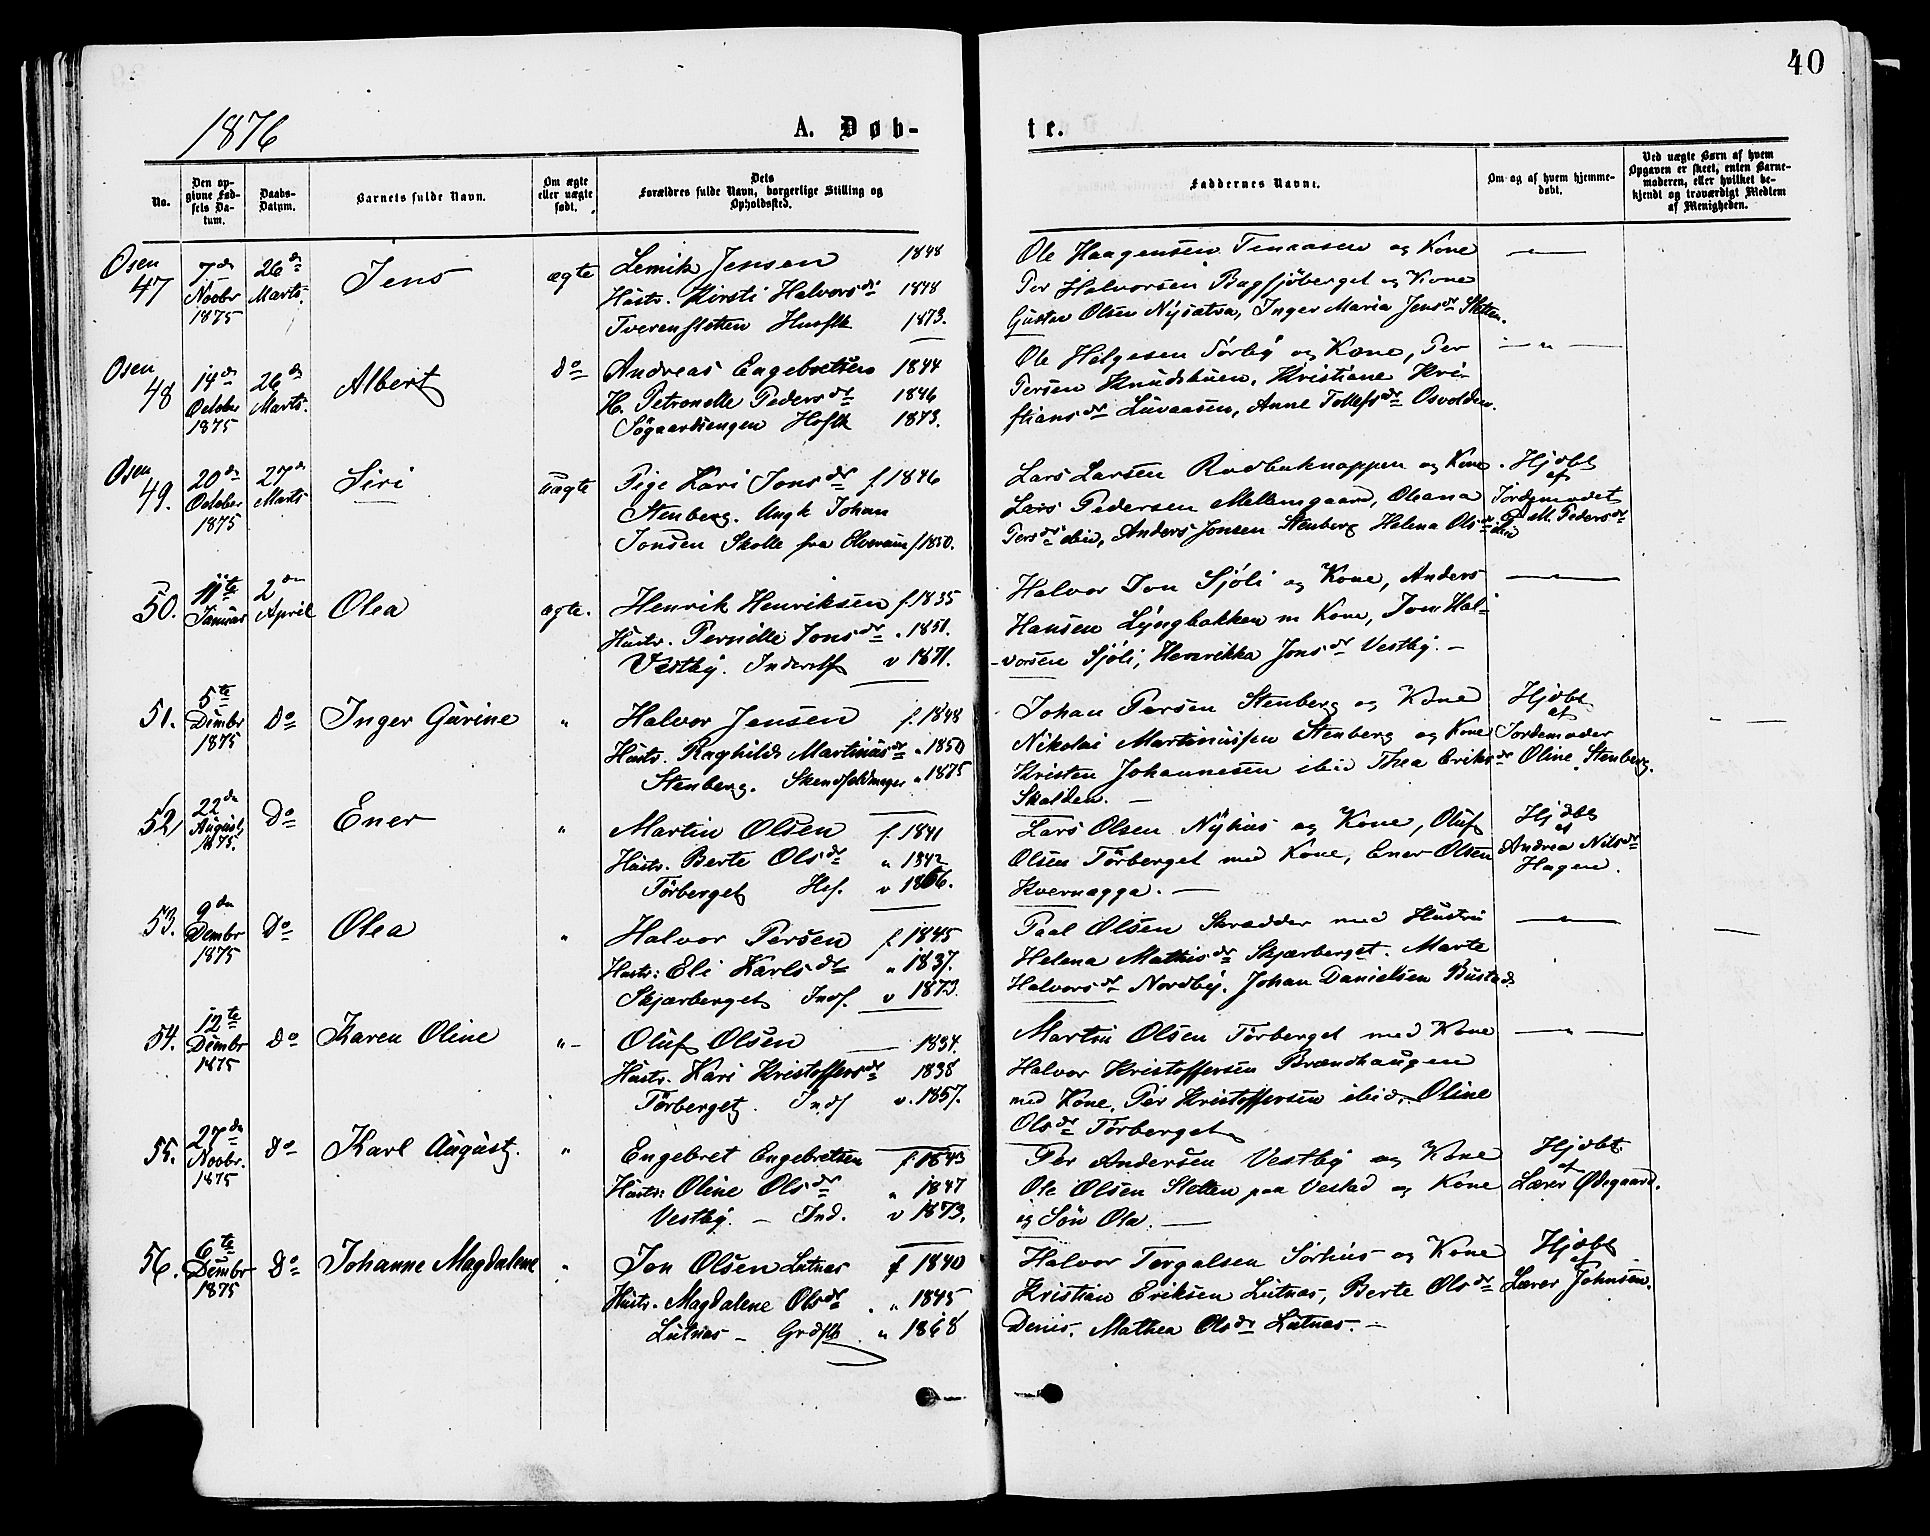 40
1876
A. Døb-
te.
No.
Den op-
givne Fød-
sels Da-
tum.
Daabs-
Datum.
Barnets fulde Navn.
Om ægte
eller uægte
født.
Dets
Forældres fulde Navn, borgerlige Stilling og
Opholdssted.
Faddernes Navne.
Om og af hvem hjemme-
døbt.
Ved uægte Børn af hvem
Opgaven er skeet, enten Barne-
moderen, eller hvilket be-
kjendt og troværdigt Medlem
af Menigheden.
Osen
47 7de Novbr 1875 26de Marts. Jens ægte
Lemik Jensen 1848
Hustr. Kirsti Halvorsdr 1848
Tverenfletten Husflk 1873.
Ole Haagensen Tenaasen og Kone
Per Halvorsen Bagsjöberget og Kone
Gustav Olsen Nysætra, Inger Maria Jensdr Sletten.
Osen
48 14de October 1875 26de Marts. Albert do
Andreas Engebretsen 1844
H. Petronelle Pedersdr 1846
Søgaardsengen Hosflk 1873.
Ole Helgesen Nörby og Kone, Per
Persen Knudshuen, Kristiane Kri-
stiansdr Luvaasen, Anne Tollefsdr Osvolden.
Osen
49. 20de October 1875 27de Marts Siri uægte
Pige Kari Jonsdr f. 1846
Stenberg. Ungk Johan
Jonsen Skolle fra Elverum f. 1850.
Lars Larsen Rødbuknappen og Kone
Lars Pedersen Mellemgaard, Oleana
Persdr ibid, Anders Jonsen Stenberg Helena Olsdr ibid
Hjdbt
af
Jordemodet
M. Pedersdr
50. 11te Januar 2den April Olea ægte.
Henrik Henriksen f. 1835
Hustr. Pernille Jonsdr " 1851.
Vestby. Inderst v 1871.
Halvor Jon Sjöli og Kone, Anders
Hansen Lyngbakken m Kone, Jon Hal-
-vorsen Sjöli, Henrikka Jonsdr Vestby. -
51. 5te Dembr 1875 Do Inger Gurine "
Halvor Jensen f. 1848
Hustr. Raghilds Martinusdr " 1850
Stenberg. " 1875
Johan Persen Stenberg og Kone
Nikolai Martinussen Stenberg og Kone
Kristen Johannesen ibid Thea Eriksdr
Skolden. -
Hjdbt
af
Jordemoder
Oline Stenberg.
52 22de August 1875. Do Ener "
Martin Olsen f. 1841
Hustr. Berte Olsdr " 1842
Törberget Hsf. v 1866.
Lars Olsen Nyhus og Kone, Oluf
Olsen Törberget med Kone, Ener Olsen
Kvernagga. -
Hjdbt
af
Andrea Nilsdr
Hagen.
53. 9de Dembr 1875 Do Olea "
Halvor Persen f. 1845
Hustr: Eli Karlsdr " 1837.
Skjærberget Indf. v 1873.
Paal Olsen Skrædder med Hustru
Helena Mathisdr Skjærberget. Marte
Halvorsdr Nordby. Johan Danielsen Bustad
54. 12te Dembr 1875 do Karen Oline "-
Oluf Olsen 1834.
Hustr. Kari Kristoffersdr 1838
Törberget. Indf v. 1857.
Martin Olsen Törberget med Kone
Halvor Kristoffersen Brændhaugen
med Kone, Per Kristoffersen ibid. Oline
Olsdr Törberget
55. 27de Novbr. 1875 do Karl August. "
Engebret Engebretsen f. 1843
Hustr: Oline Olsdr " 1847
Vestby. - Ind. v 1873.
Per Andersen Vestby og Kone
Ole Olsen Sletten paa Vestad og Kone
og Sön Ola. -
Hjdbt
af
Lærer Ødegaard.
56. 6te Dembr 1875 Do Johanne Magdalene "
Jon Olsen Lutnæs f 1840
Hustr. Magdalene Olsdr " 1845
Lutnæs - Grdflk " 1868
Halvor Torgalsen Sörhus og Kone
Kristian Eriksen Lutnæs, Berte Olsdr
Denis. Mathea Olsdr Lutnæs. -
Hjdbt
af
Lærer Johnsen.